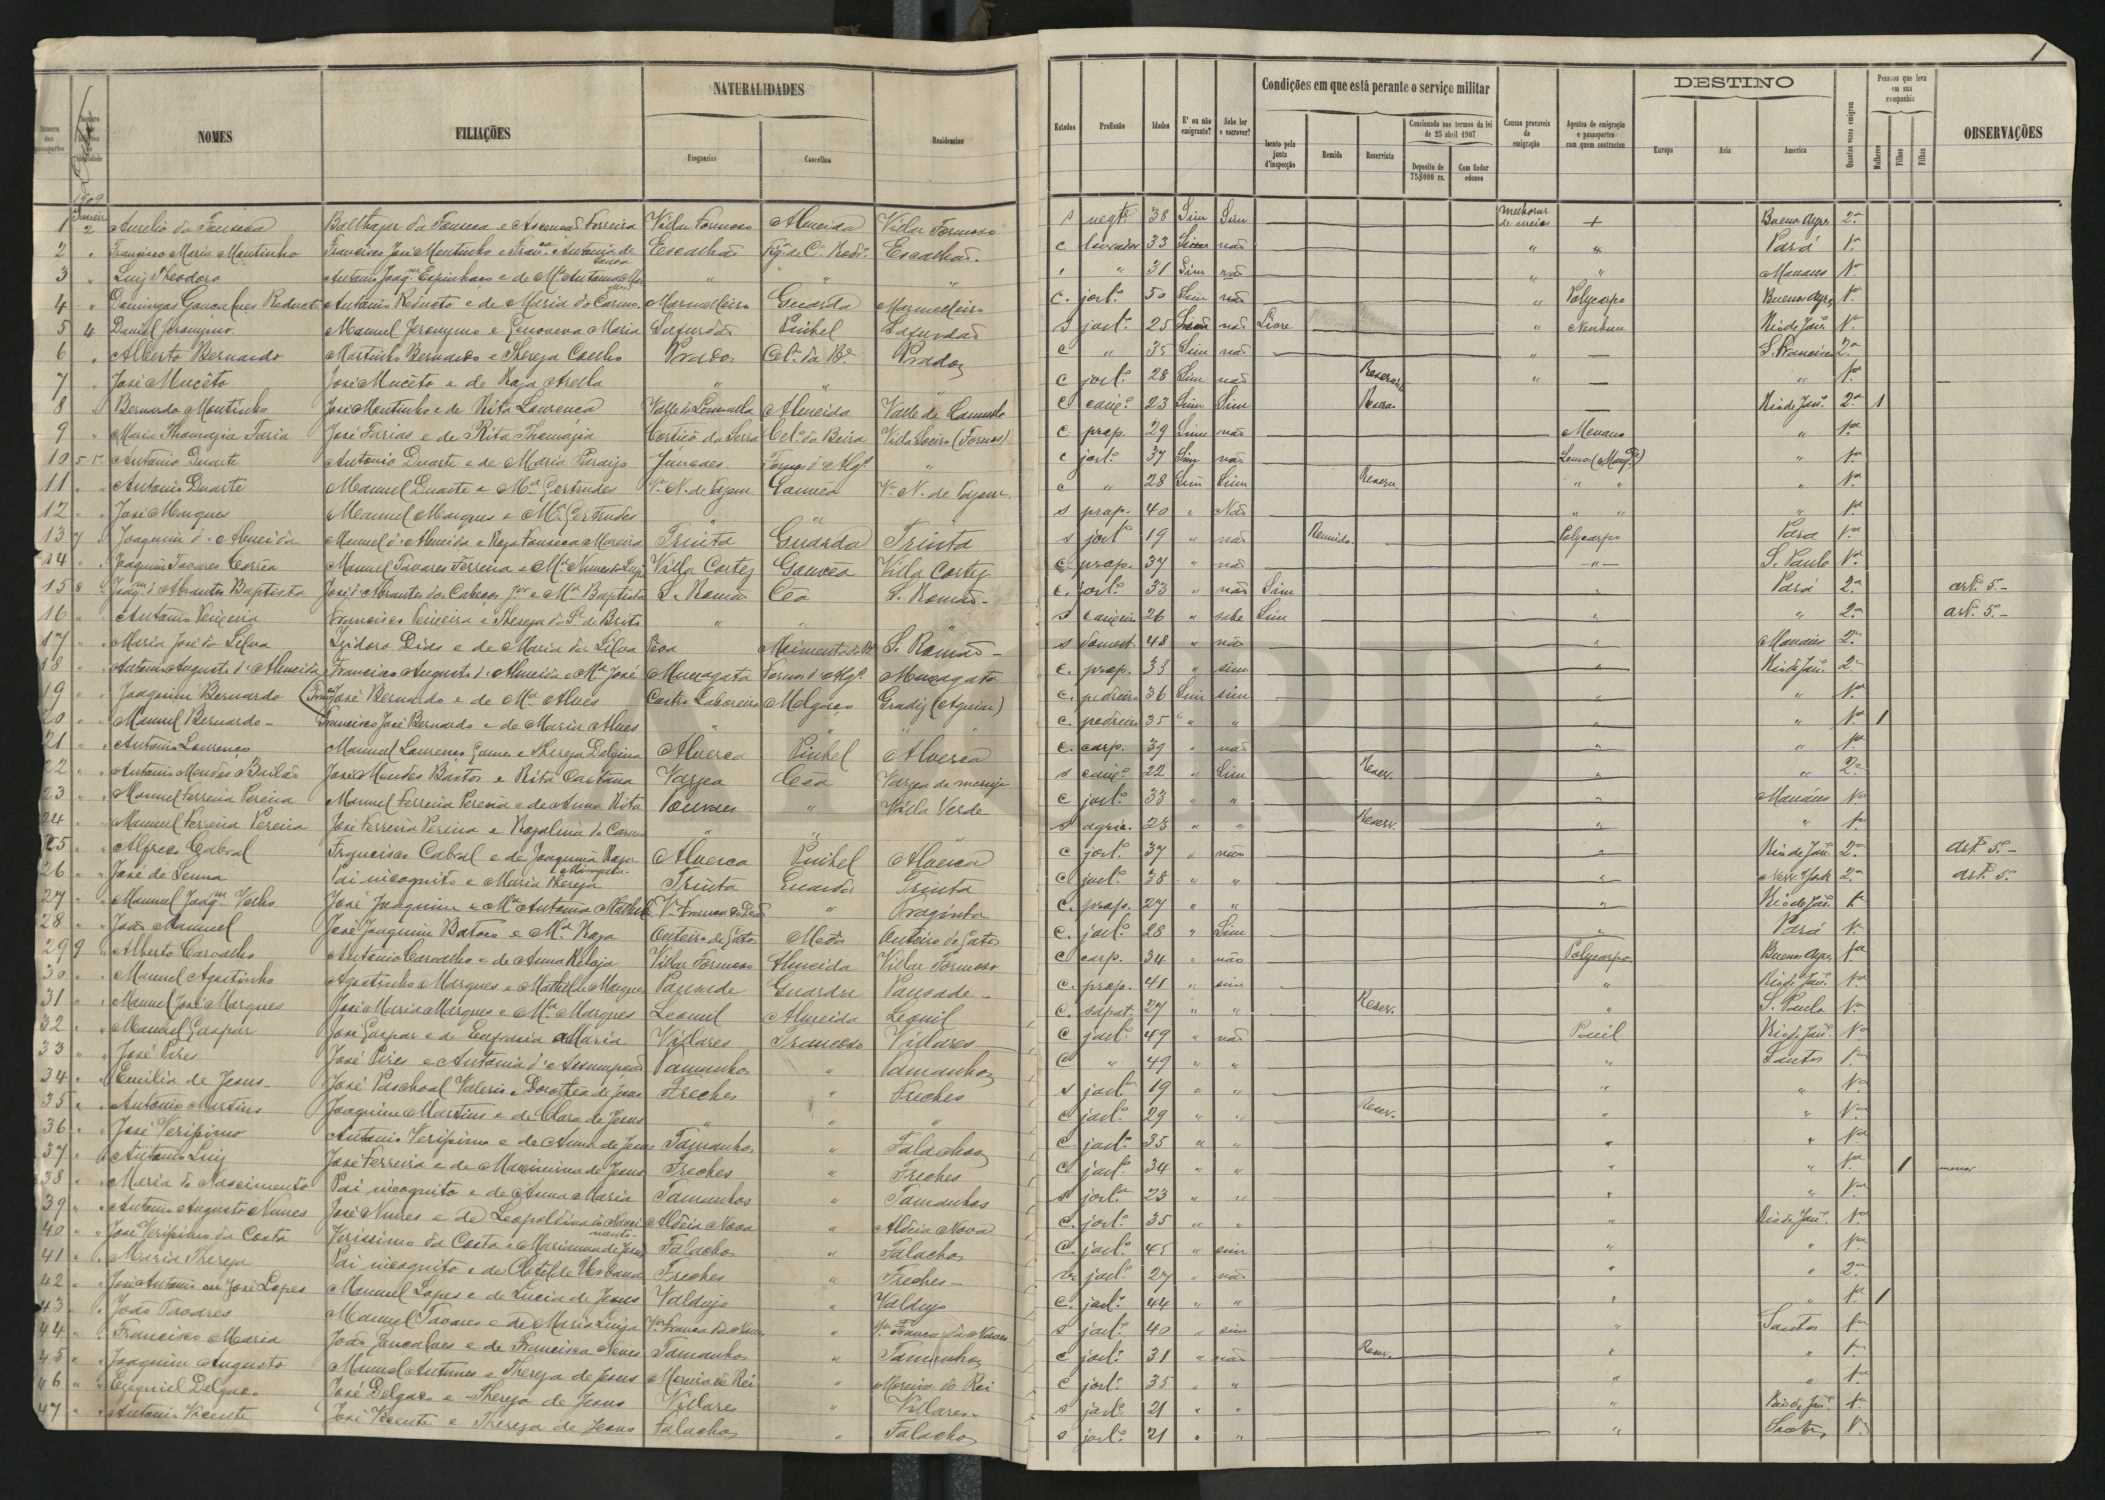 1
NOMES
FILIAÇÕES
NATURALIDADES
Freguezias
Concelhos
Residencias
Estados
Profissão
Idades
E' ou não emigrante?
Sabe ler e escrever?
Condições em que está perante o serviço militar
Isento pela junta d'inspecção
Remido
Reservista
Caucionado nos termos da lei de 25 abril 1907
Deposito de 75$000 rs.
Com fiador idoneo
Causas provaveis da emigração
Agentes de emigração e passaportes com quem contractou
DESTINO
Europa
Asia
America
Quantas vezes emigrou
Pessoas que leva em sua companhia
Mulheres
Filhos
Filhas
OBSERVAÇÕES
1909
Janeiro
1 2 Aurelio da Fonseca Balthazar da Fonseca e Ascensão Ferreira Villar Formoso Almeida Villar Formoso s negte 38 Sim Sim melhorar de Buenos Ayres 2.ª
2 " Francisco Maria Montinho Francisco José Montinho e Antonia de Escalhão Figª de C. Rodº Escalhão c lavrador 33 Sim não " " Pará 1.ª
3 " Luiz Theodoro " " " " 31 Sim não " " Manaus 1.ª
4 " Domingos Gonçalves Reducto Antonio Reducto e de Maria do Carmo Marmelleiro Guarda Marmelleiro c. jorlº 50 Sim não " Polycarpo Buenos Ayres 1.ª
5 4 Daniel Jeronymo Manuel Jeronymo e Genoveva Maria Safurdão Pinhel Safurdão s jorlº 25 não Livre " Nenhum Rio de Janº 1.ª
6 " Alberto Bernardo Martinho Bernardo e Thereza Coelho Prados Celº da Bª Prados c " 35 Sim não " — 2.ª
7 " José Mucêto José Mucêto e de Roza " " " c jorlº 28 Sim não Reserv. " — " 1.ª
8 " Bernardo Montinho José Montinho e de Rita Lourença Almeida Valle de c 23 Sim Sim Reserv. — Rio de Janº 2.ª 1
9 " Maria Thomazia Faria José Farias e de Rita Thomazia Cortiçô da Serra Celº da Beira c prop. 29 Sim não " 1.ª
10 5 Antonio Duarte Antonio Duarte e de Maria " c jorlº 37 Sim não " 1.ª
11 " " Antonio Duarte Manuel Duarte e Mª Gertrudes Vª N. de Gouvêa Vª N. de c " 28 Sim Sim Reserv. " " " 1.ª
12 " " José Marques Manuel Marques e Mª Gertrudes " " " s prop. 40 " Não " " " 1.ª
13 7 " Joaquim d'Almeida Manuel d'Almeida e Roza Fonseca Moreira Trinta Guarda Trinta s jorlº 19 " não Remido Polycarpo Pará 1.ª
14 " " Joaquim Tavares Corrêa Manuel Tavares Ferreira e Mª Villa Cortez Gouvêa Villa Cortez c prop. 37 " não " S. Paulo 1.ª
15 8 " Joaqm d'Abrantes Baptista José d'Abrantes dos Cabeços e Mª Baptista S. Romão Cêa S. Romão c. jorlº 33 " não Sim " Pará 2.ª artº 5.º
16 " " Antonio Teixeira Francisco Teixeira e Thereza de Brito " " " s 26 " sabe Sim " " 2.ª artº 5.º
17 " " Maria José da Silva Izidoro Dias e de Maria da Silva S. Romão s domest. 48 " não " Manaus 2.ª
18 " " Antonio Augusto d'Almeida Francisco Augusto d'Almeida e Mª José Muxagata Fornos d'Algº Muxagata c. prop. 33 " sim " Rio de Janº 2.ª
19 " " Joaquim Bernardo José Bernardo e de Mª Alves Castro Laboreiro Melgaço Gradiz (Aguiar) c. pedreiro 36 Sim sim " " 1.ª
20 " " Manuel Bernardo Francisco José Bernardo e de Maria Alves " " " c. pedreiro 35 " " " " 1.ª 1
21 " " Antonio Lourenço Manuel Lourenço Gomes e Thereza Delfina Alverca Pinhel Alverca c. carp. 39 " não " " 1.ª
22 " " Antonio Mendes José Mendes Bastos e Rita Caetana Varzea Cêa Varzea de s 22 " Sim Reserv. " " 2.ª
23 " " Manuel Ferreira Pereira Manuel Ferreira Pereira e de Anna Rita " Villa Verde c jorlº 33 " " " Manaus 1.ª
24 " " Manuel Ferreira Pereira José Ferreira Pereira e Rozalina do Carmo " " " s agric. 23 " " Reserv. " " 1.ª
25 " " Alfredo Cabral Francisco Cabral e de Joaquina Roza Alverca Pinhel Alverca c jorlº 37 " não " Rio de Janº 2.ª artº 5.º
26 " " José de Senna Pai incognito e Maria Thereza Trinta Guarda Trinta c jorlº 38 " " " New York 2.ª artº 5.º
27 " " Manuel Joaqm Velho José Joaquim e Mª Antonia " c. prop. 27 " " " Rio de Janº 1.ª
28 " " João Manuel José Joaquim e Mª Roza Outeiro de Gatos Mêda Outeiro de Gatos c. jorlº 28 " Sim " Pará 1.ª
29 9 " Alberto Carvalho Antonio Carvalho e de Anna Villar Formoso Almeida Villar Formoso c carp. 34 " não Polycarpo Buenos Ayres 1.ª
30 " " Manuel Agostinho Agostinho Marques e Mathilde Marques Panoade Guarda Pousade c. prop. 41 " sim " Rio de Janº 1.ª
31 " " Manuel José Marques José Maria Marques e Mª Marques Leomil Almeida Leomil c. sapat. 27 " " Reserv. " S. Paulo 1.ª
32 " " Manuel Gaspar José Gaspar e de Eufrasia Maria Villares Trancoso Villares c jorlº 49 " não Rio de Janº 1.ª
33 " " José Pires José Pires e Antonia d'Assumpção Tamanhos " Tamanhos c " 49 " " " Santos 1.ª
34 " " Emilia de Jesus José Paschoal Valerio e Dorothea de Jesus Freches " Freches s jorlª 19 " " " " 1.ª
35 " " Antonio Martins Joaquim Martins e de Clara de Jesus " " " c jorlº 29 " " Reserv. " " 1.ª
36 " " José Verissimo Antonio Verissimo e de Anna de Jesus Tamanhos " Falachos c jorlº 35 " " " " 1.ª
37 " " Antonio Luiz José Ferreira e de Maximina de Jesus Freches " Freches c jorlº 34 " " " " 1.ª 1 menor
38 " " Maria do Nascimento Pai incognito e de Anna Maria Tamanhos " Tamanhos s jorlª 23 " " " " 1.ª
39 " " Antonio Augusto Nunes José Nunes e de Leopoldina do Nascimento Aldeia Nova " Aldeia Nova c. jorlº 35 " " " Rio de Janº 1.ª
40 " " José Verissimo da Costa Verissimo da Costa e Marianna de Jesus Falachos " Falachos c. jorlº 45 " sim " " 1.ª
41 " " Maria Thereza Pai incognito e de Clotilde Urbana Freches " Freches jorlª 27 " não " " 2.ª
42 " " José Antonio ou José Lopes Manuel Lopes e de Lucia de Jesus Valdujo " Valdujo c. jorlº 44 " " " " 1.ª 1
43 " " João Tavares Manuel Tavares e de Maria Luiza Vª Franca das Naves " Vª Franca das Naves s jorlº 40 " sim " Santos 1.ª
44 " " Francisco Maria João Gonçalves e de Francisca Neves Tamanhos " Tamanhos c jorlº 31 " não Reserv. " " 1.ª
45 " " Joaquim Augusto Manuel Antunes e Thereza de Jesus Moreira de Rei " Moreira de Rei c jorlº 35 " " " " 1.ª
46 " " Ezequiel Delgado José Delgado e Thereza de Jesus Villares " Villares s jorlº 21 " " " Rio de Janº 1.ª
47 " " Antonio Vicente José Vicente e Thereza de Jesus Falachos " Falachos s jorlº 21 " " " Santos 1.ª